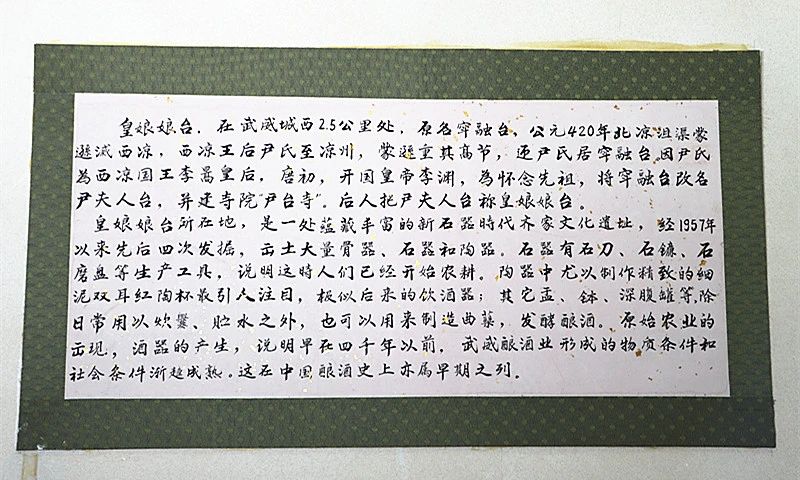 皇娘娘台，在武威城西2.5公里处，原名窄融台，公元420年北凉沮渠蒙
逊滅西凉，西凉王后尹氏至凉州，蒙逊重其高节，迁尹氏居窄融台，因尹氏
為西凉国王李暠皇后，唐初，开国皇帝李渊，為怀念先祖，将窄融台改名
尹夫人台，并建寺院"尹台寺"。后人把尹夫人台称皇娘娘台。
皇娘娘台所在地，是一处蕴藏丰富的新石器時代齐家文化遗址，经1957年
以来先后四次发掘，出土大量骨器、石器和陶器。石器有石刀、石镰、石
磨盘等生产工具，说明这時人们已经开始农耕。陶器中尤以制作精致的细
泥双耳红陶杯最引人注目，极似后来的饮酒器；其它盂、钵、深腹罐等，除
日常用以炊爨、贮水之外，也可以用来制造曲蘖，发酵酿酒。原始农业的
出现，酒器的产生，说明早在四千年以前，武威酿酒业形成的物质条件和
社会条件渐趋成熟。这在中国酿酒史上亦属早期之列。